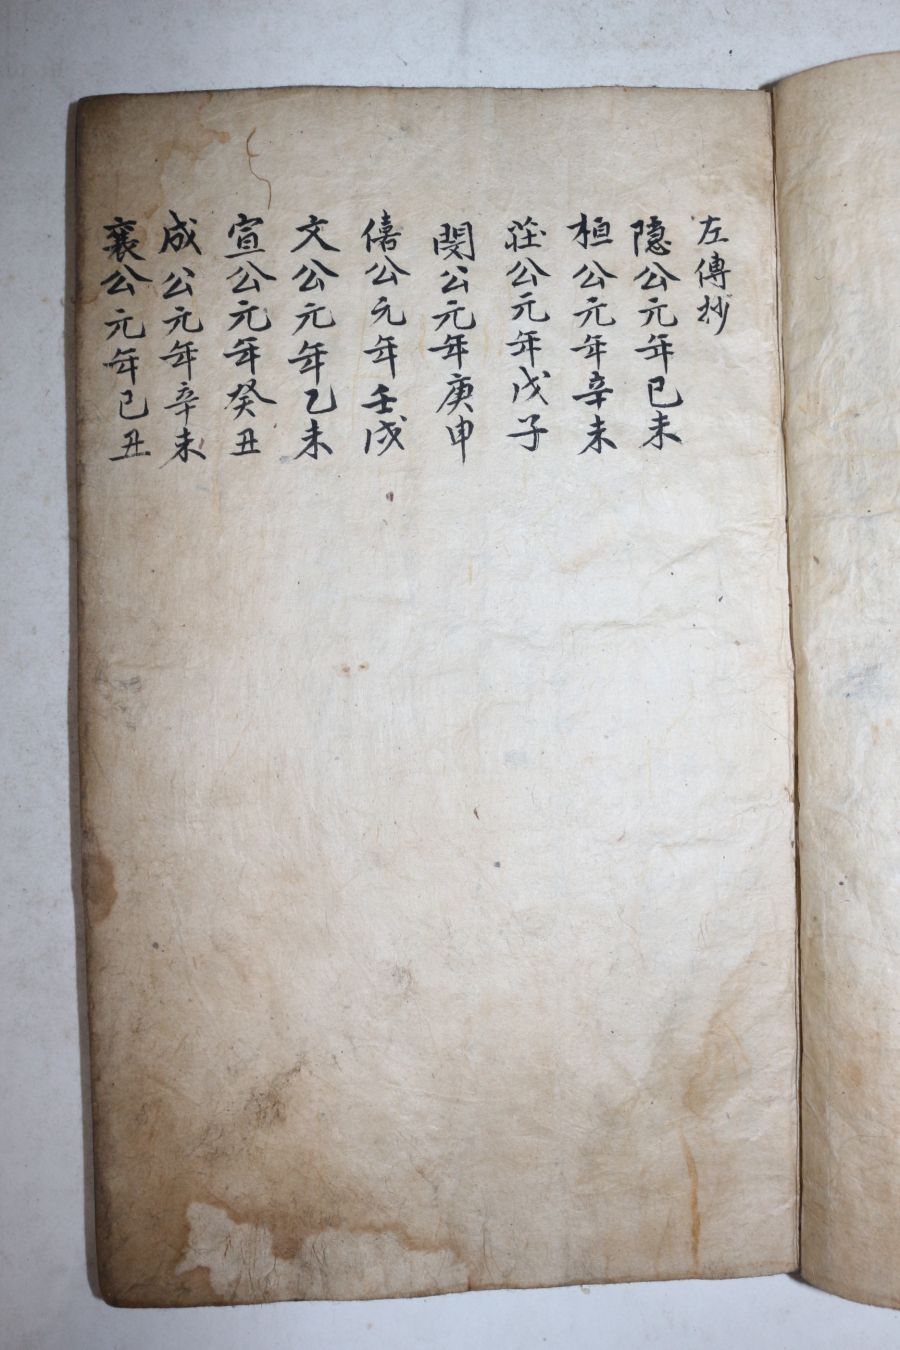 左傳抄
隱公元年己未
桓公元年辛未
莊公元年戊子
閔公元年庚申
僖公元年壬戌
文公元年乙未
宣公元年癸丑
成公元年辛未
襄公元年己丑